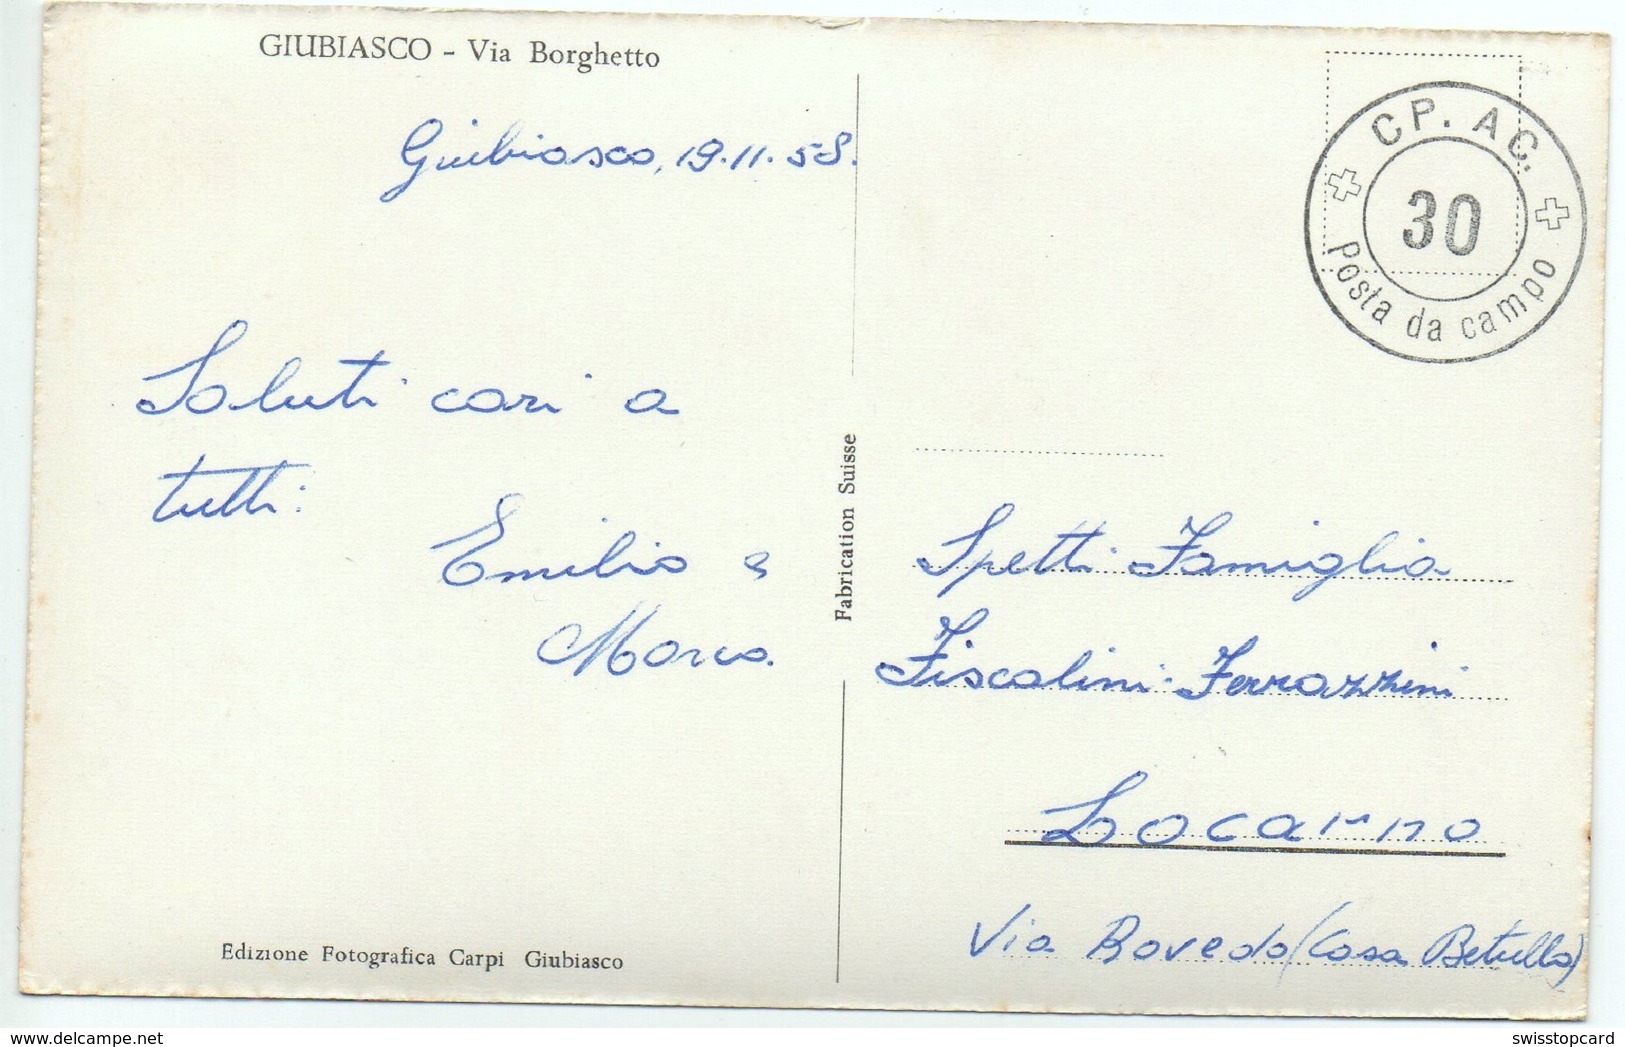 GIUBIASCO - Via Borghetto
Giubiasco, 19.11.58.
Saluti cari a
tutti:
Emilio e
Marco.
Edizione Fotografica Carpi Giubiasco
Fabrication Suisse
CP. AC.
30
Posta da campo
Spetti Famiglia
Fiscalini-Ferrazzini
Locarno
Via Rovedo (Casa Betulla)
swisstopcard